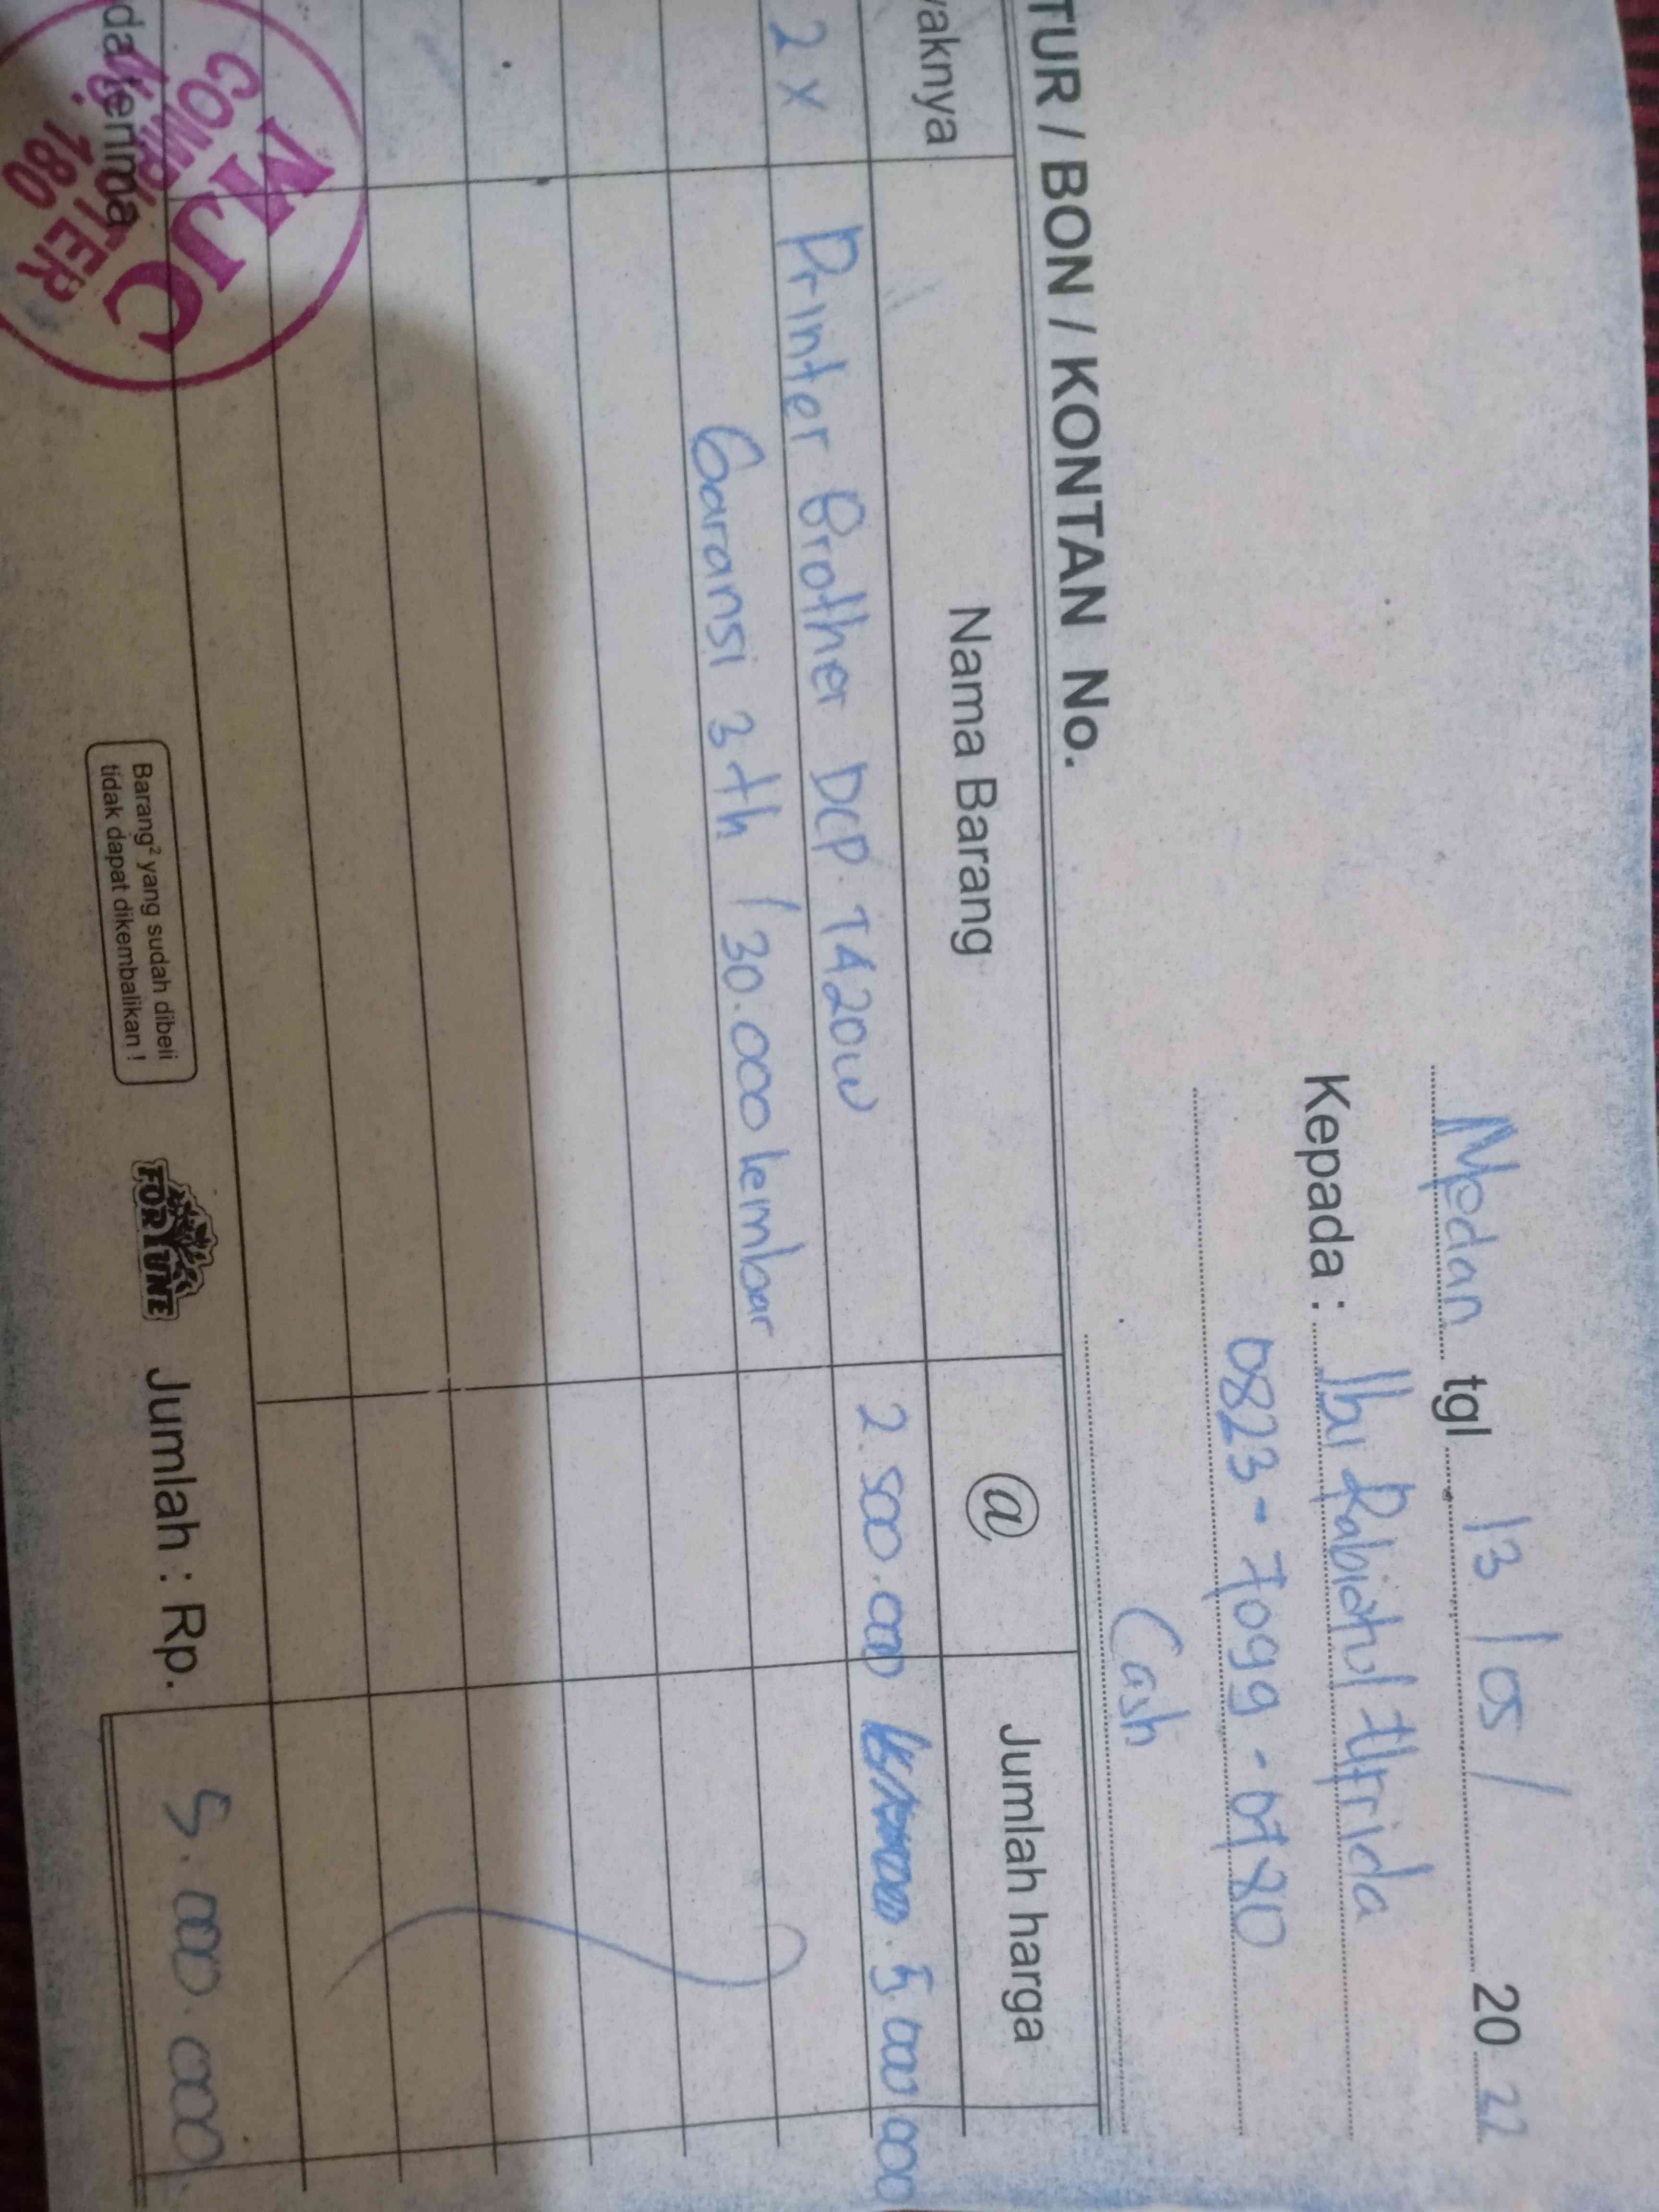 Medan tgl 13 / 05 / 20 22
Kepada : Ibu Rabiatul
0823 - 7099 - 0780
Cash
TUR / BON / KONTAN No.
yaknya Nama Barang @ Jumlah harga
2 x Printer Brother DCP T420W 2.500.000 5.000.000
Garansi 3 th / 30.000 lembar
da terima
MJC
COMPUTER
180
Barang² yang sudah dibeli
tidak dapat dikembalikan !
FORTUNE
Jumlah : Rp. 5.000.000